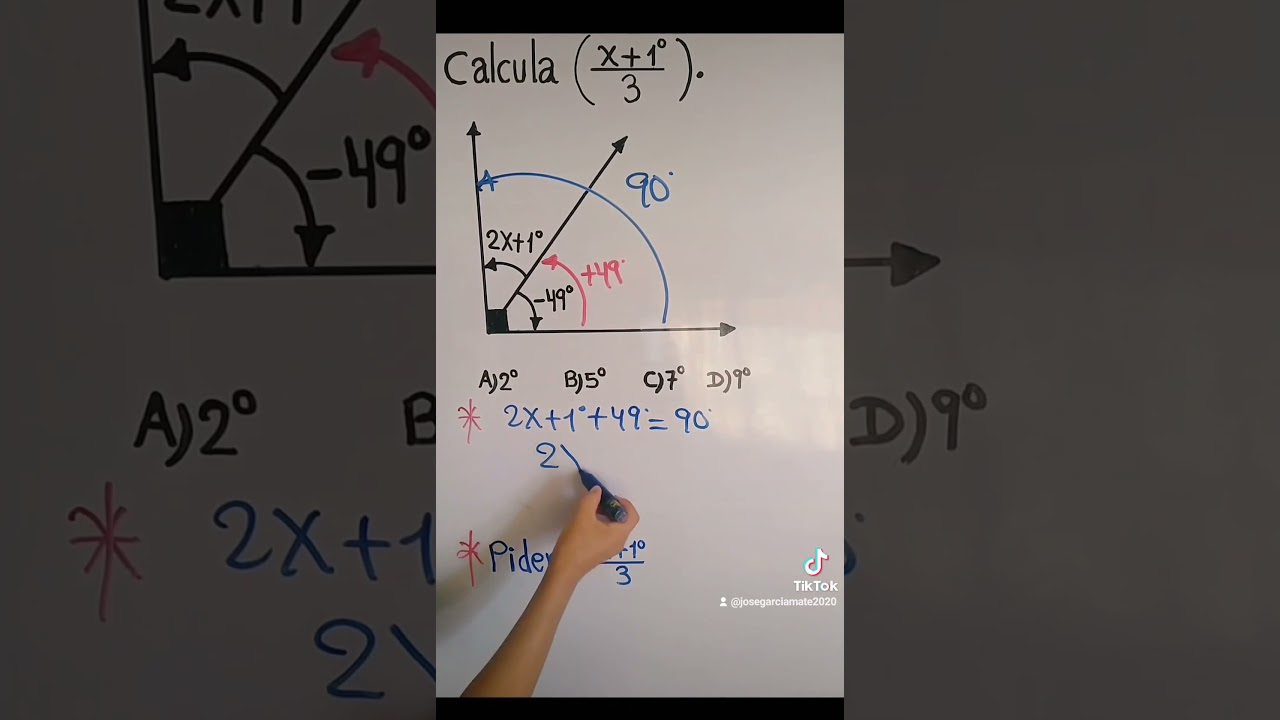 Calcula (x+1°/3).
90°
2x+1°
+49°
-49°
A)2° B)5° C)7° D)9°
* 2x+1°+49°=90°
2
* Piden +1°/3
TikTok
@josegarciamate2020